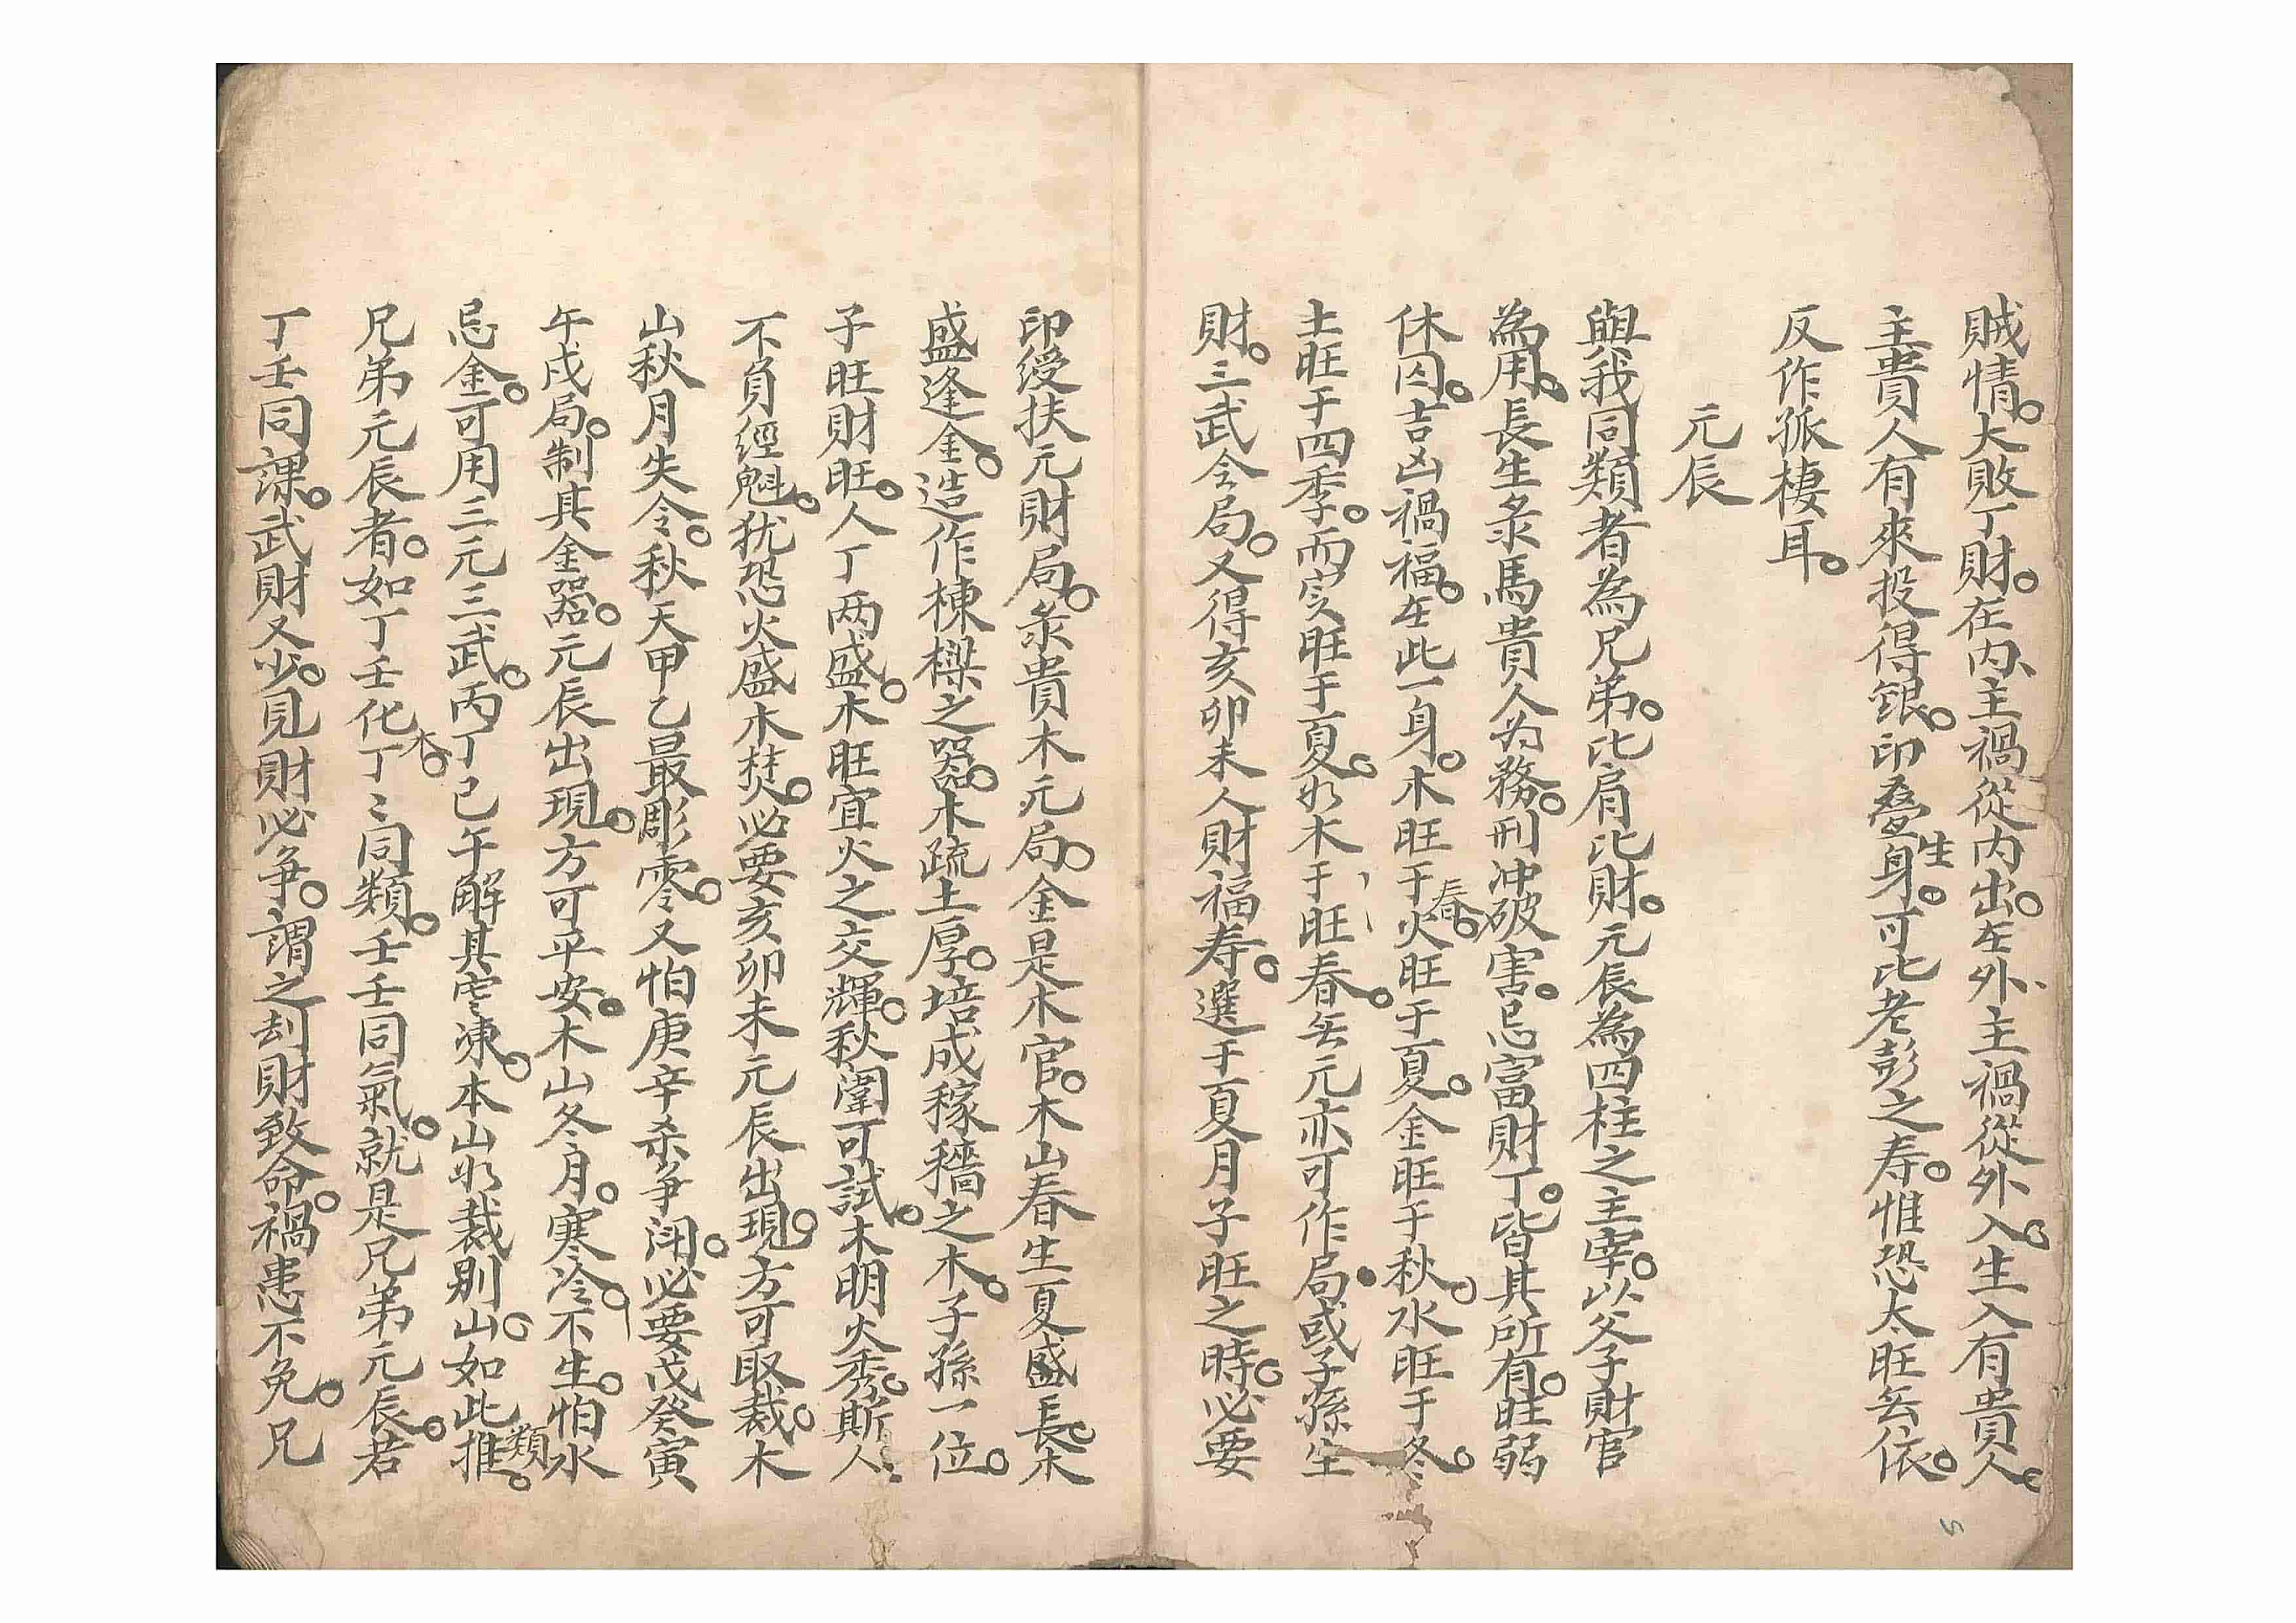 賊情。大敗丁財。在内、主禍從内出。在外、主禍從外入。生入有貴人。
主貴人有來投得銀。印叠生身。可比老彭之寿。惟恐太旺無依。
反作孤棲耳。
元辰
與我同類者為兄弟。比肩比財。元辰為四柱之主宰。以父子財官
為用。長生彔馬貴人为務。刑冲破害。忌富財丁。皆其所有。旺弱
休囚。吉凶禍福。在此一身。木旺于春。火旺于夏。金旺于秋。水旺于冬。
土旺于四季。而实旺于夏。如木于旺春。無元亦可作局。或子孫生
財。三武令局。又得亥卯未人財福寿。選于夏月子旺之時。必要
印绶扶元財局。彔貴木元局。金是木官。木山春生夏盛長。木
盛逢金。造作棟樑之器。木疏土厚。培成稼穡之木。子孫一位。
子旺財旺。人丁两盛。木旺宜火之交輝。秋闈可試。木明火秀。斯人
不負經魁。犹恐火盛木焚。必要亥卯未元辰出現。方可取裁。木
山秋月失令。秋天甲乙最彫零。又怕庚辛杀争闭。必要戊癸寅
午戌局。制其金器。元辰出現。方可平安。木山冬月。寒冷不生。怕水
忌金。可用三元三武。丙丁巳午解其寒凍。本山如裁别山。如此類推。
兄弟元辰者。如丁壬化木。丁〻同類。壬壬同氣。就是兄弟元辰。若
丁壬同課。武財又少。見財必争。謂之刦財致命。禍患不免。兄
5